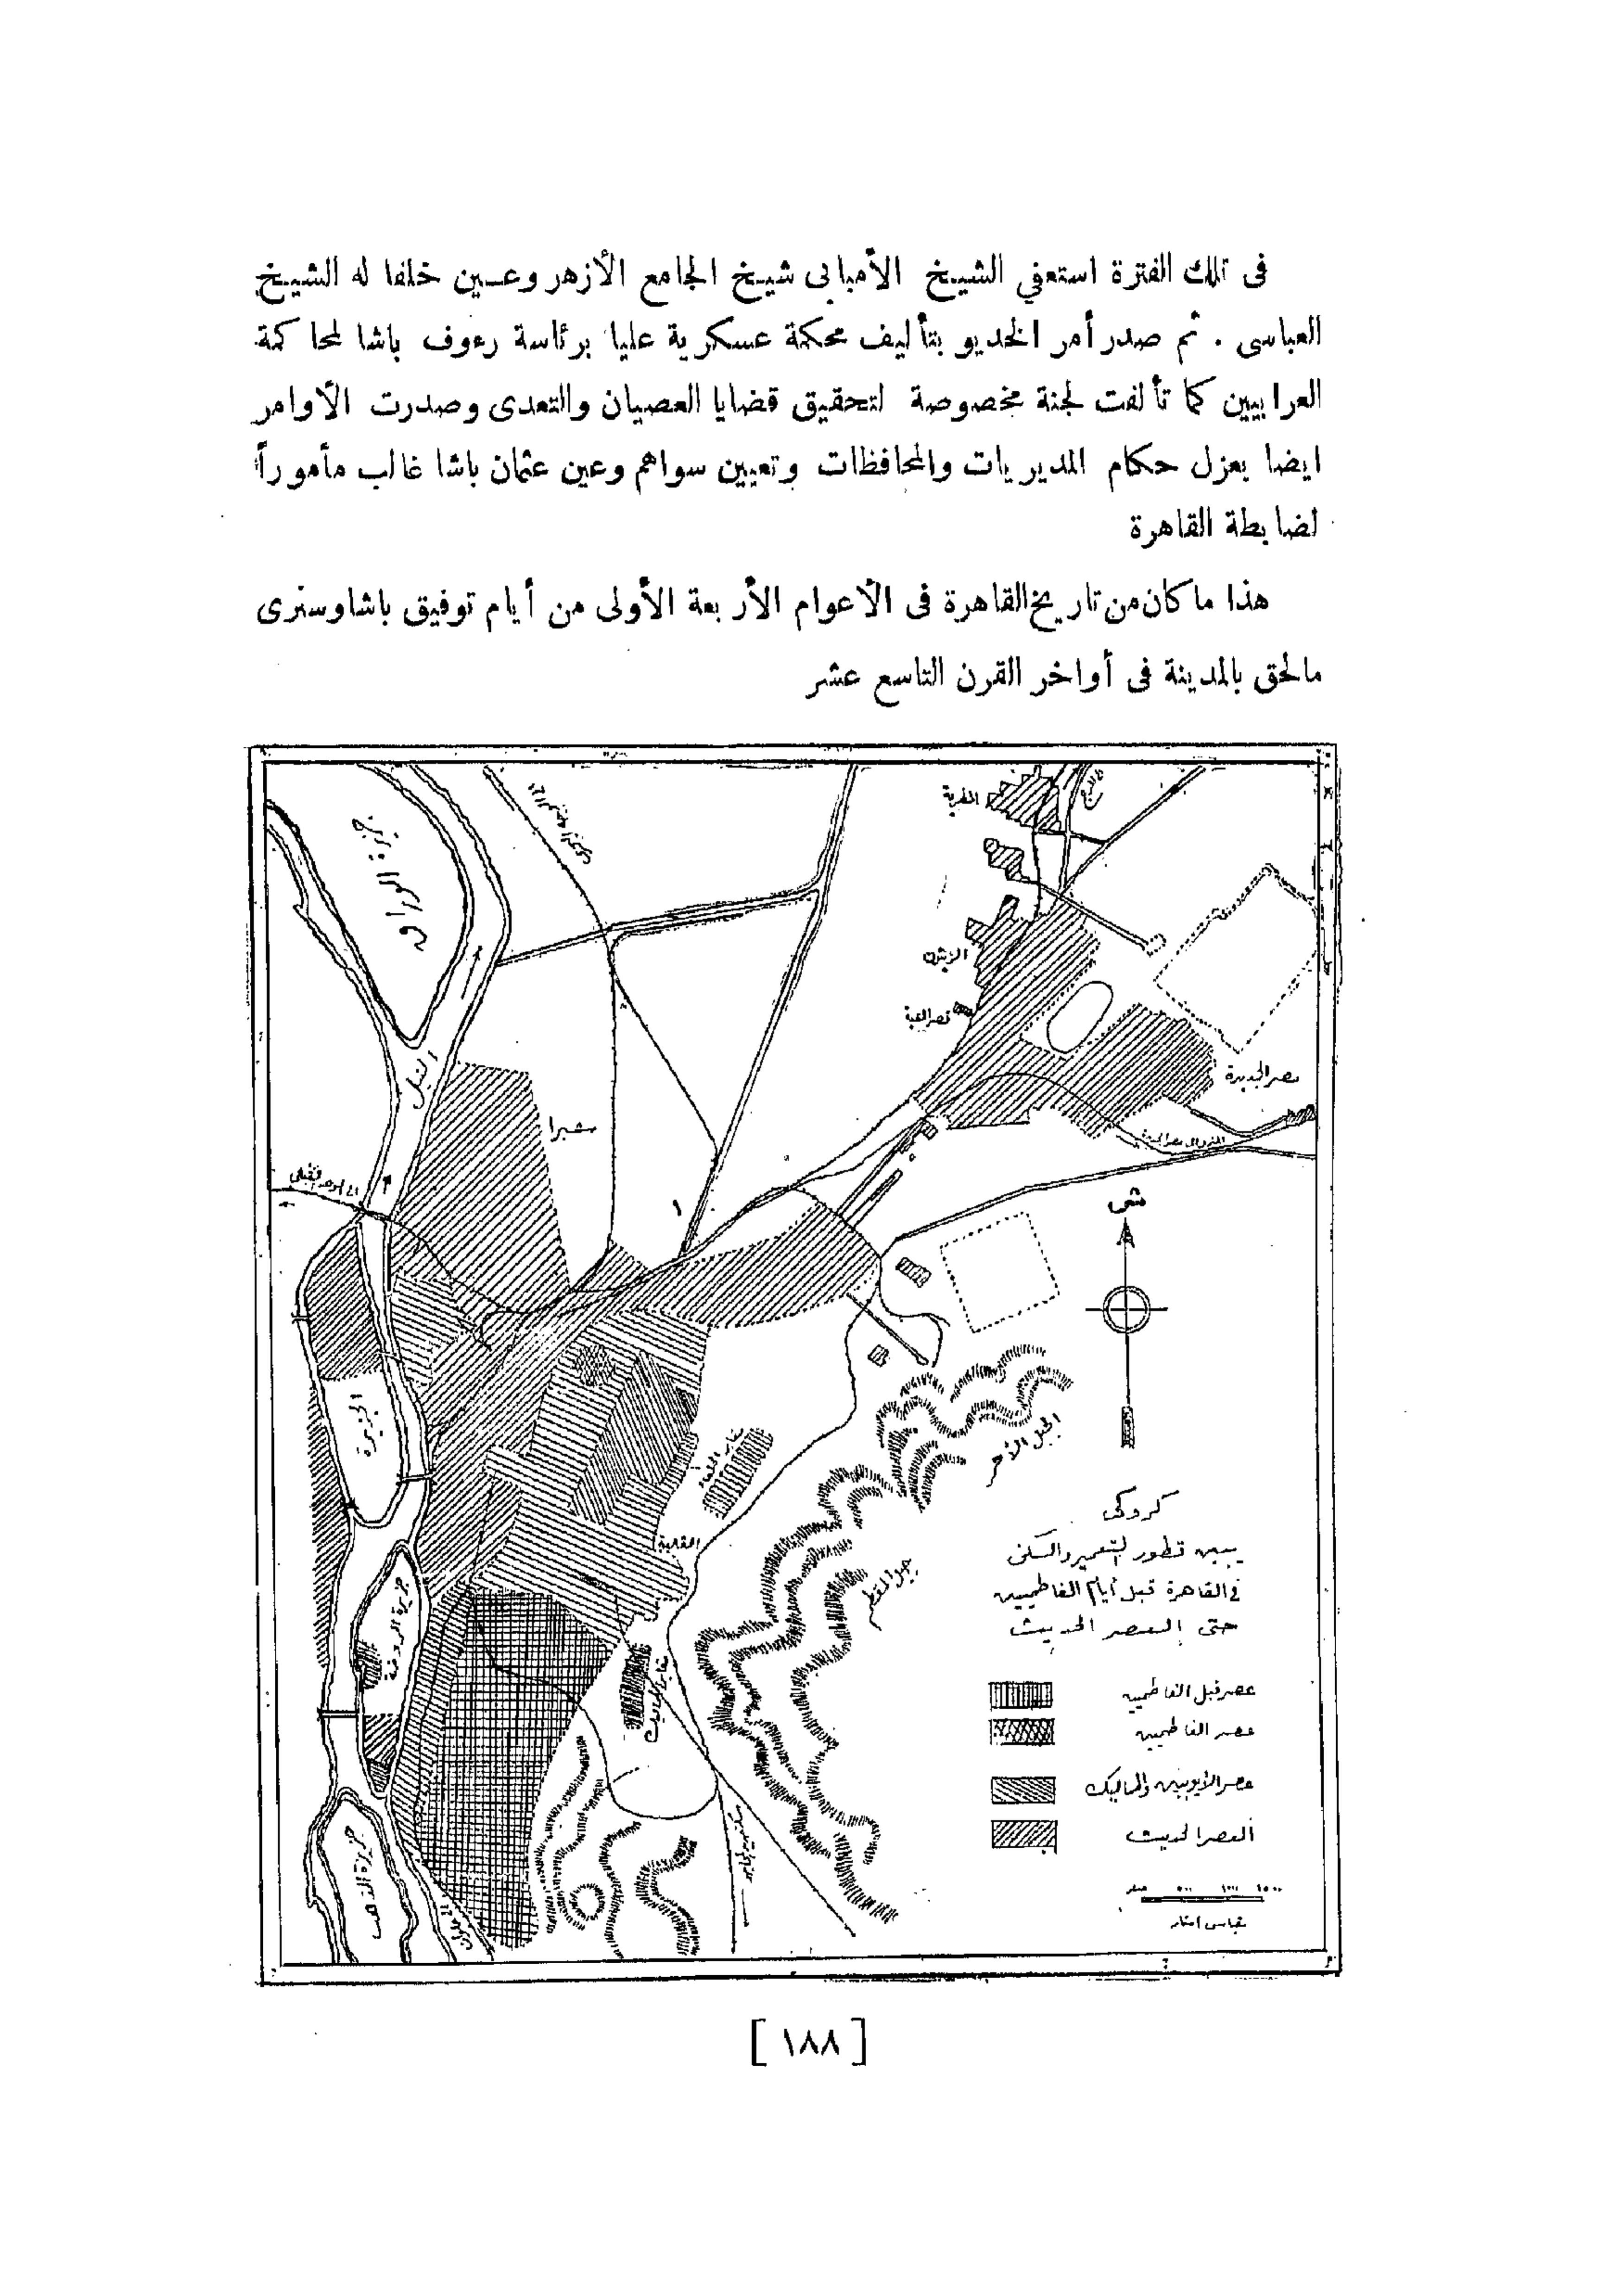 فى تلك الفترة استعفي الشيخ الأمبابى شيخ الجامع الأزهر وعين خلفا له الشيخ
العباسى . ثم صدر أمر الخديو بتأليف محكمة عسكرية عليا برئاسة رءوف باشا لمحاكمة
العرابيين كما تألفت لجنة مخصوصة لتحقيق قضايا العصيان والتعدى وصدرت الأوامر
ايضا بعزل حكام المديريات والمحافظات وتعيين سواهم وعين عثمان باشا غالب مأموراً
لضابطة القاهرة
هذا ما كان من تاريخ القاهرة فى الأعوام الأربعة الأولى من أيام توفيق باشا وسنرى
مالحق بالمدينة فى أواخر القرن التاسع عشر
المطرية
جزيرة الوراق
الزيتون
قصر القبة
مصر الجديدة
النيل
شبرا
إلى الوجه القبلى
ش
الجزيرة
الجبل الأحمر
مقابر الخلفاء
القلعة
جبل المقطم
جزيرة الروضة
مقابر المماليك
جزيرة الذهب
كروكى
يبين تطور التعمير والسكن
فى القاهرة قبل أيام الفاطميين
حتى العصر الحديث
عصر قبل الفاطميين
عصر الفاطميين
عصر الأيوبيين والمماليك
العصر الحديث
صفر ٥٠٠ ١٠٠٠ ١٥٠٠
مقياس امتار
[ ١٨٨ ]